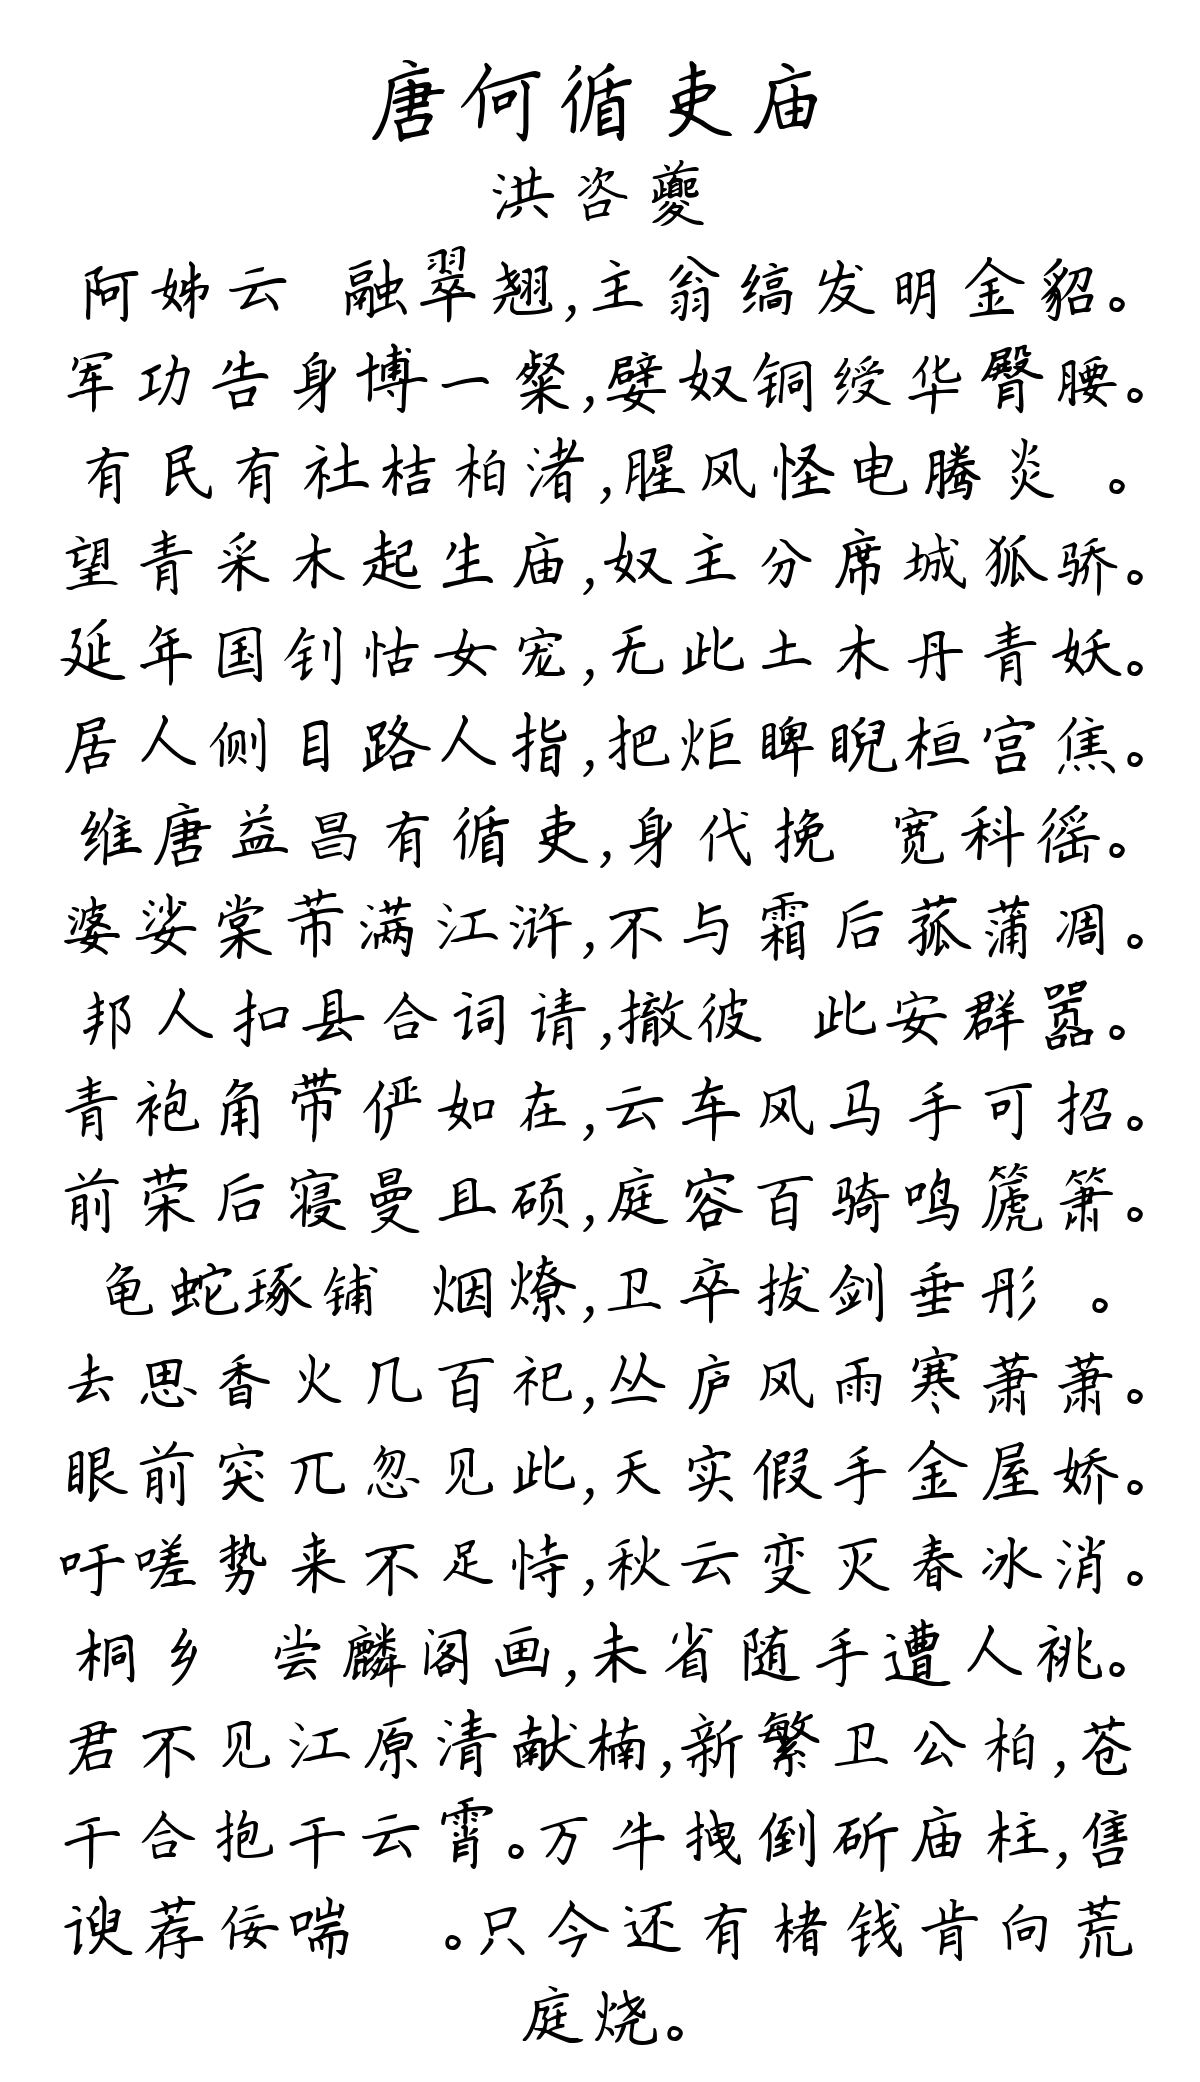 唐何循吏庙
洪咨夔
阿姊云 融翠翘,主翁缟发明金貂。
军功告身博一粲,嬖奴铜绶华臀腰。
有民有社桔柏渚,腥风怪电腾炎 。
望青采木起生庙,奴主分席城狐骄。
延年国钊怙女宠,无此土木丹青妖。
居人侧目路人指,把炬睥睨桓宫焦。
维唐益昌有循吏,身代挽 宽科徭。
婆娑棠芾满江浒,不与霜后菰蒲凋。
邦人扣县合词请,撤彼 此安群嚣。
青袍角带俨如在,云车风马手可招。
前荣后寝曼且硕,庭容百骑鸣篪箫。
龟蛇琢铺 烟燎,卫卒拔剑垂彤 。
去思香火几百祀,丛庐风雨寒萧萧。
眼前突兀忽见此,天实假手金屋娇。
吁嗟势来不足恃,秋云变灭春冰消。
桐乡 尝麟阁画,未省随手遭人祧。
君不见江原清献楠,新繁卫公柏,苍
干合抱干云霄。万牛拽倒斫庙柱,售
谀荐佞喘  。只今还有楮钱肯向荒
庭烧。